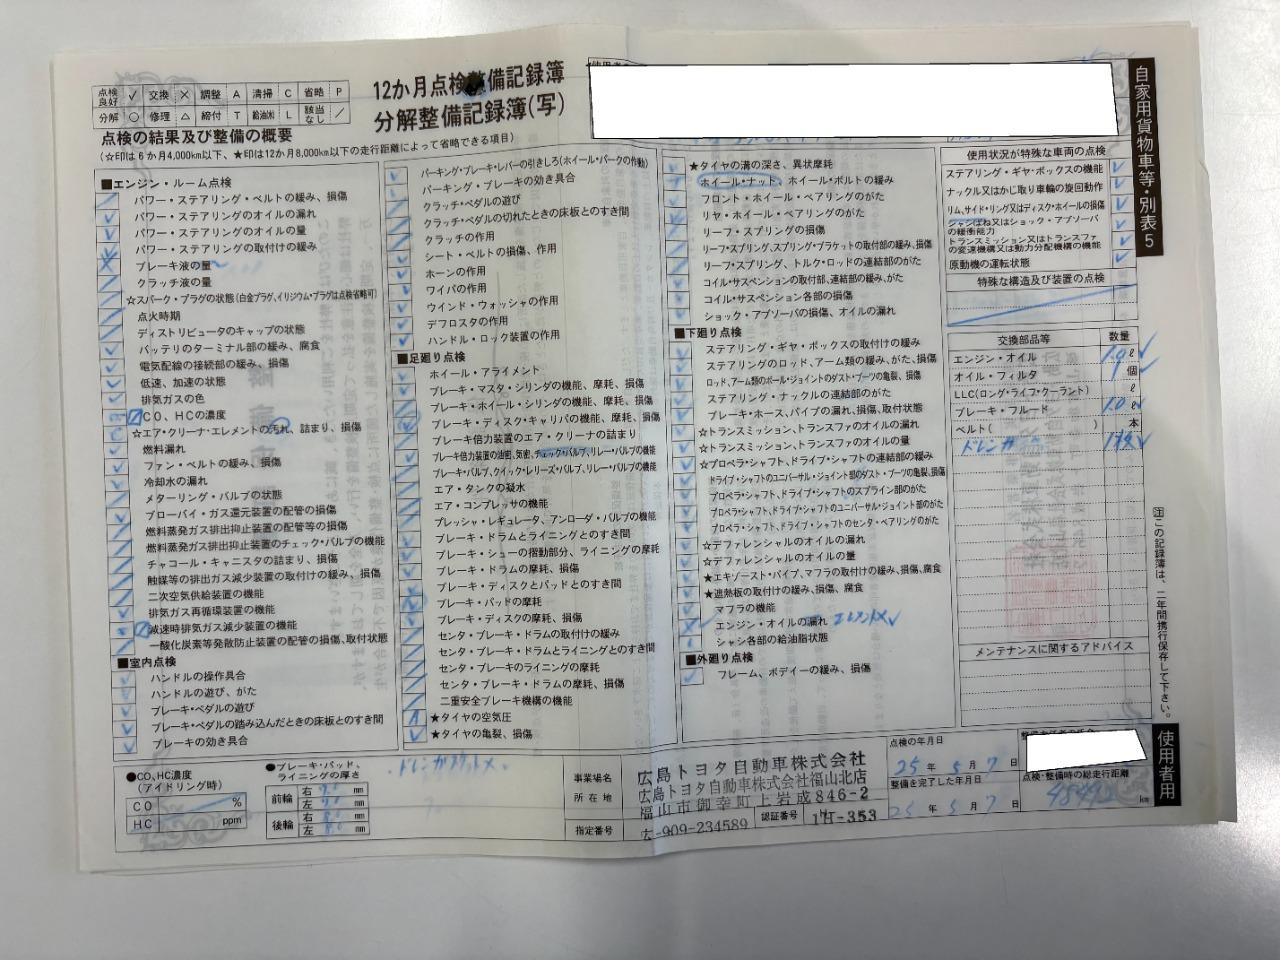 12か月点検整備記録簿
分解整備記録簿(写)
点検良好 ✓ 交換 × 調整 A 清掃 C 省略 P
分解 ○ 修理 △ 締付 T 給油(水) L 該当なし ／
点検の結果及び整備の概要
(☆印は6か月4,000km以下、★印は12か月8,000km以下の走行距離によって省略できる項目)
■エンジン・ルーム点検
パワー・ステアリング・ベルトの緩み、損傷
パワー・ステアリングのオイルの漏れ
パワー・ステアリングのオイルの量
パワー・ステアリングの取付けの緩み
ブレーキ液の量
クラッチ液の量
☆スパーク・プラグの状態(白金プラグ、イリジウム・プラグは点検省略可)
点火時期
ディストリビュータのキャップの状態
バッテリのターミナル部の緩み、腐食
電気配線の接続部の緩み、損傷
低速、加速の状態
排気ガスの色
CO、HCの濃度
☆エア・クリーナ・エレメントの汚れ、詰まり、損傷
燃料漏れ
ファン・ベルトの緩み、損傷
冷却水の漏れ
メターリング・バルブの状態
ブローバイ・ガス還元装置の配管の損傷
燃料蒸発ガス排出抑止装置の配管等の損傷
燃料蒸発ガス排出抑止装置のチェック・バルブの機能
チャコール・キャニスタの詰まり、損傷
触媒等の排出ガス減少装置の取付けの緩み、損傷
二次空気供給装置の機能
排気ガス再循環装置の機能
減速時排気ガス減少装置の機能
一酸化炭素等発散防止装置の配管の損傷、取付状態
■室内点検
ハンドルの操作具合
ハンドルの遊び、がた
ブレーキ・ペダルの遊び
ブレーキ・ペダルの踏み込んだときの床板とのすき間
ブレーキの効き具合
パーキング・ブレーキ・レバーの引きしろ(ホイール・パークの作動)
パーキング・ブレーキの効き具合
クラッチ・ペダルの遊び
クラッチ・ペダルの切れたときの床板とのすき間
クラッチの作用
シート・ベルトの損傷、作用
ホーンの作用
ワイパの作用
ウインド・ウォッシャの作用
デフロスタの作用
ハンドル・ロック装置の作用
■足廻り点検
ホイール・アライメント
ブレーキ・マスタ・シリンダの機能、摩耗、損傷
ブレーキ・ホイール・シリンダの機能、摩耗、損傷
ブレーキ・ディスク・キャリパの機能、摩耗、損傷
ブレーキ倍力装置のエア・クリーナの詰まり
ブレーキ倍力装置の油密、気密、チェック・バルブ、リレー・バルブの機能
ブレーキ・バルブ、クイック・レリーズ・バルブ、リレー・バルブの機能
エア・タンクの凝水
エア・コンプレッサの機能
プレッシャ・レギュレータ、アンローダ・バルブの機能
ブレーキ・ドラムとライニングとのすき間
ブレーキ・シューの摺動部分、ライニングの摩耗
ブレーキ・ドラムの摩耗、損傷
ブレーキ・ディスクとパッドとのすき間
ブレーキ・パッドの摩耗
ブレーキ・ディスクの摩耗、損傷
センタ・ブレーキ・ドラムの取付けの緩み
センタ・ブレーキ・ドラムとライニングとのすき間
センタ・ブレーキのライニングの摩耗
センタ・ブレーキ・ドラムの摩耗、損傷
二重安全ブレーキ機構の機能
★タイヤの空気圧
★タイヤの亀裂、損傷
★タイヤの溝の深さ、異状摩耗
ホイール・ナット、ホイール・ボルトの緩み
フロント・ホイール・ベアリングのがた
リヤ・ホイール・ベアリングのがた
リーフ・スプリングの損傷
リーフ・スプリング、スプリング・ブラケットの取付部の緩み、損傷
リーフ・スプリング、トルク・ロッドの連結部のがた
コイル・サスペンションの取付部、連結部の緩み、がた
コイル・サスペンション各部の損傷
ショック・アブソーバの損傷、オイルの漏れ
■下廻り点検
ステアリング・ギヤ・ボックスの取付けの緩み
ステアリングのロッド、アーム類の緩み、がた、損傷
ロッド、アーム類のボール・ジョイントのダスト・ブーツの亀裂、損傷
ステアリング・ナックルの連結部のがた
ブレーキ・ホース、パイプの漏れ、損傷、取付状態
☆トランスミッション、トランスファのオイルの漏れ
☆トランスミッション、トランスファのオイルの量
☆プロペラ・シャフト、ドライブ・シャフトの連結部の緩み
ドライブ・シャフトのユニバーサル・ジョイント部のダスト・ブーツの亀裂、損傷
プロペラ・シャフト、ドライブ・シャフトのスプライン部のがた
プロペラ・シャフト、ドライブ・シャフトのユニバーサル・ジョイント部のがた
プロペラ・シャフト、ドライブ・シャフトのセンタ・ベアリングのがた
☆デファレンシャルのオイルの漏れ
☆デファレンシャルのオイルの量
★エキゾースト・パイプ、マフラの取付けの緩み、損傷、腐食
★遮熱板の取付けの緩み、損傷、腐食
マフラの機能
エンジン・オイルの漏れ エレメント× ✓
シャシ各部の給油脂状態
■外廻り点検
フレーム、ボディーの緩み、損傷
使用状況が特殊な車両の点検
ステアリング・ギヤ・ボックスの機能
ナックル又はかじ取り車輪の旋回動作
リム、サイド・リング又はディスク・ホイールの損傷
シャシばね又はショック・アブソーバの緩衝能力
トランスミッション又はトランスファの変速機構又は動力分配機構の機能
原動機の運転状態
特殊な構造及び装置の点検
交換部品等 数量
エンジン・オイル ℓ
オイル・フィルタ 個
LLC(ロング・ライフ・クーラント) ℓ
ブレーキ・フルード 1.0 ℓ
ベルト( ) 本
メンテナンスに関するアドバイス
自家用貨物車等・別表5
注 この記録簿は、二年間携行保存して下さい。
使用者用
●CO、HC濃度
(アイドリング時)
CO %
HC ppm
●ブレーキ・パッド、
ライニングの厚さ
前輪 右 mm
左 mm
後輪 右 8.0 mm
左 8.0 mm
ドレンガスケット×
事業場名 広島トヨタ自動車株式会社
所在地 広島トヨタ自動車株式会社福山北店
福山市御幸町上岩成846-2
指定番号 広-909-234589 認証番号 1ｻ-353
点検の年月日
25年 5月 7日
整備を完了した年月日
25年 5月 7日
点検・整備時の総走行距離
km